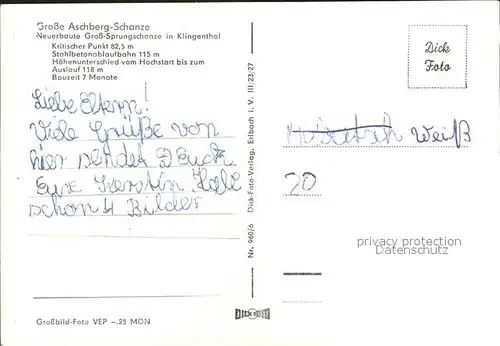 Große Aschberg-Schanze
Neuerbaute Groß-Sprungschanze in Klingenthal
Kritischer Punkt 82,5 m
Stahlbetonablaufbahn 115 m
Höhenunterschied vom Hochstart bis zum
Auslauf 118 m
Bauzeit 7 Monate
Liebe Eltern!
Viele Grüße von
hier sendet Euch
Eure Kerstin. Habe
schon 4 Bilder
Großbild-Foto VEP –.25 MDN
Nr. 960/6 Dick-Foto-Verlag, Erlbach i. V. III/23/27
Dick
Foto
Weiß
20
privacy protection
Datenschutz
DICK FOTO